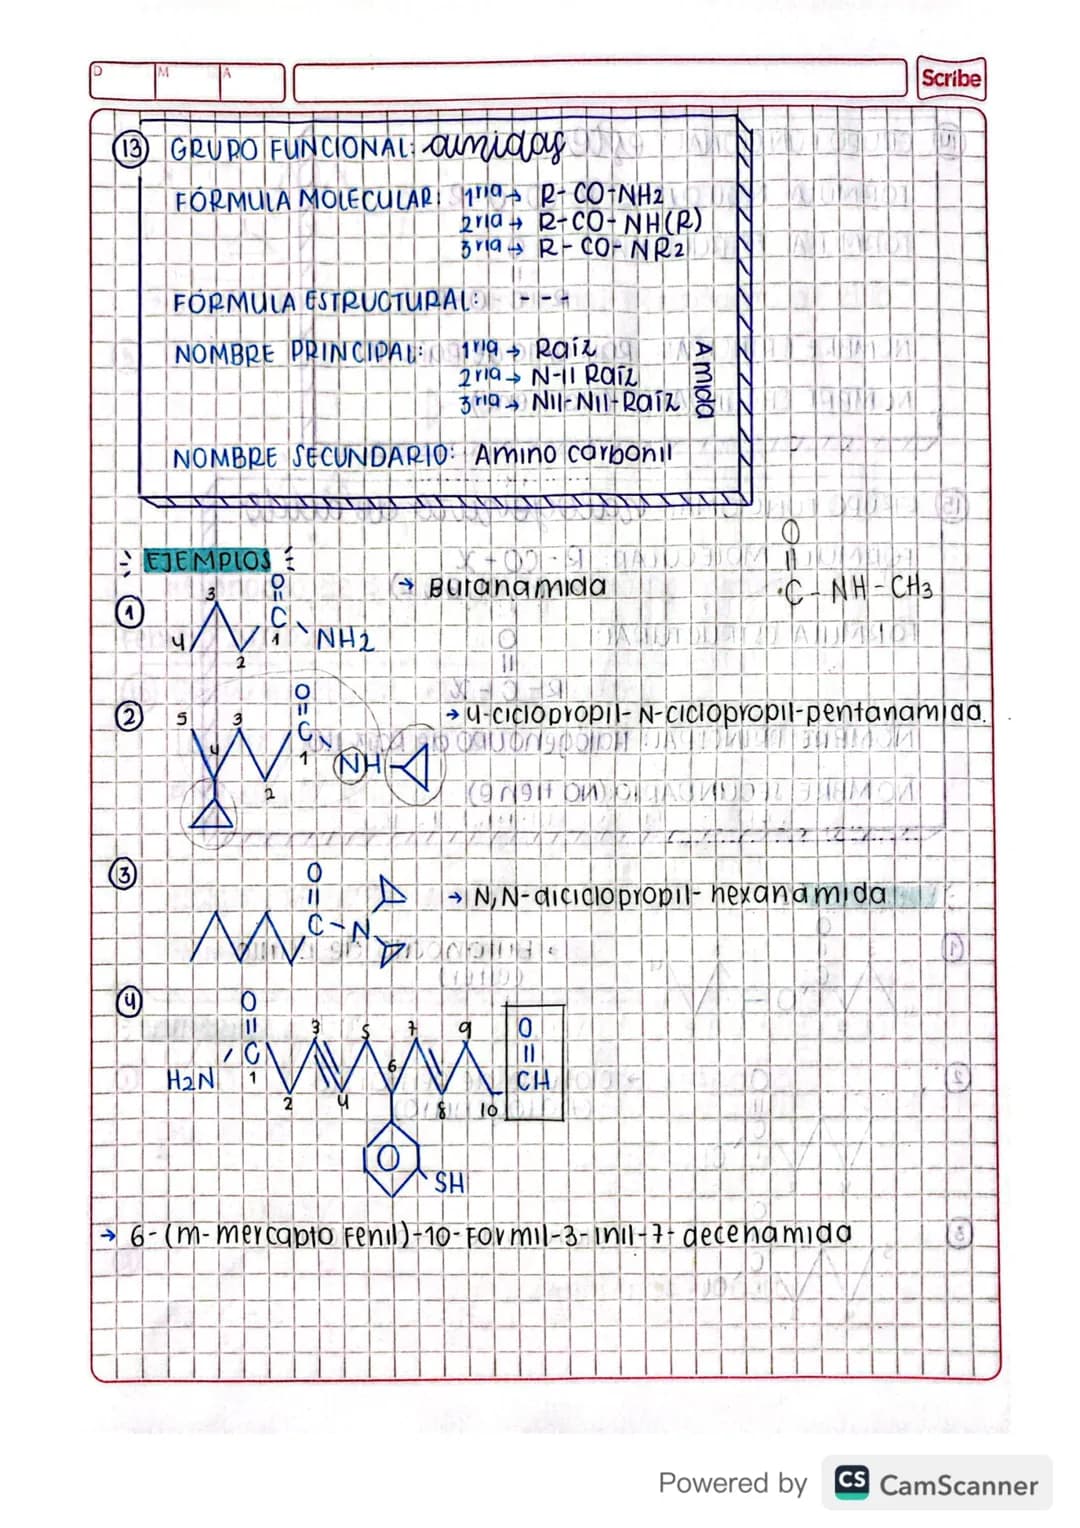 D M A
Scribe
13 GRUPO FUNCIONAL: amidas
FÓRMULA MOLECULAR: 1ria → R-CO-NH2
2ria → R-CO-NH(R)
3ria → R-CO-NR2
FÓRMULA ESTRUCTURAL: ---
NOMBRE PRINCIPAL: 1ria → Raíz
2ria → N-11 Raíz
3ria → N11-N11-Raíz
Amida
NOMBRE SECUNDARIO: Amino carbonil
EJEMPLOS
O
=
C-NH-CH3
1
→ Butanamida
O
=
C
NH2
4 3 2 1
2
→ 4-ciclopropil-N-ciclopropil-pentanamida.
O
=
C
NH
5 4 3 2 1
3
O
=
C-N
→ N,N-diciclopropil-hexanamida
4
O
=
C
H2N
1 2 3 4 5 6 7 8 9 10
O
=
CH
SH
→ 6-(m-mercapto Fenil)-10-Formil-3-inil-7-decenamida
Powered by CS CamScanner